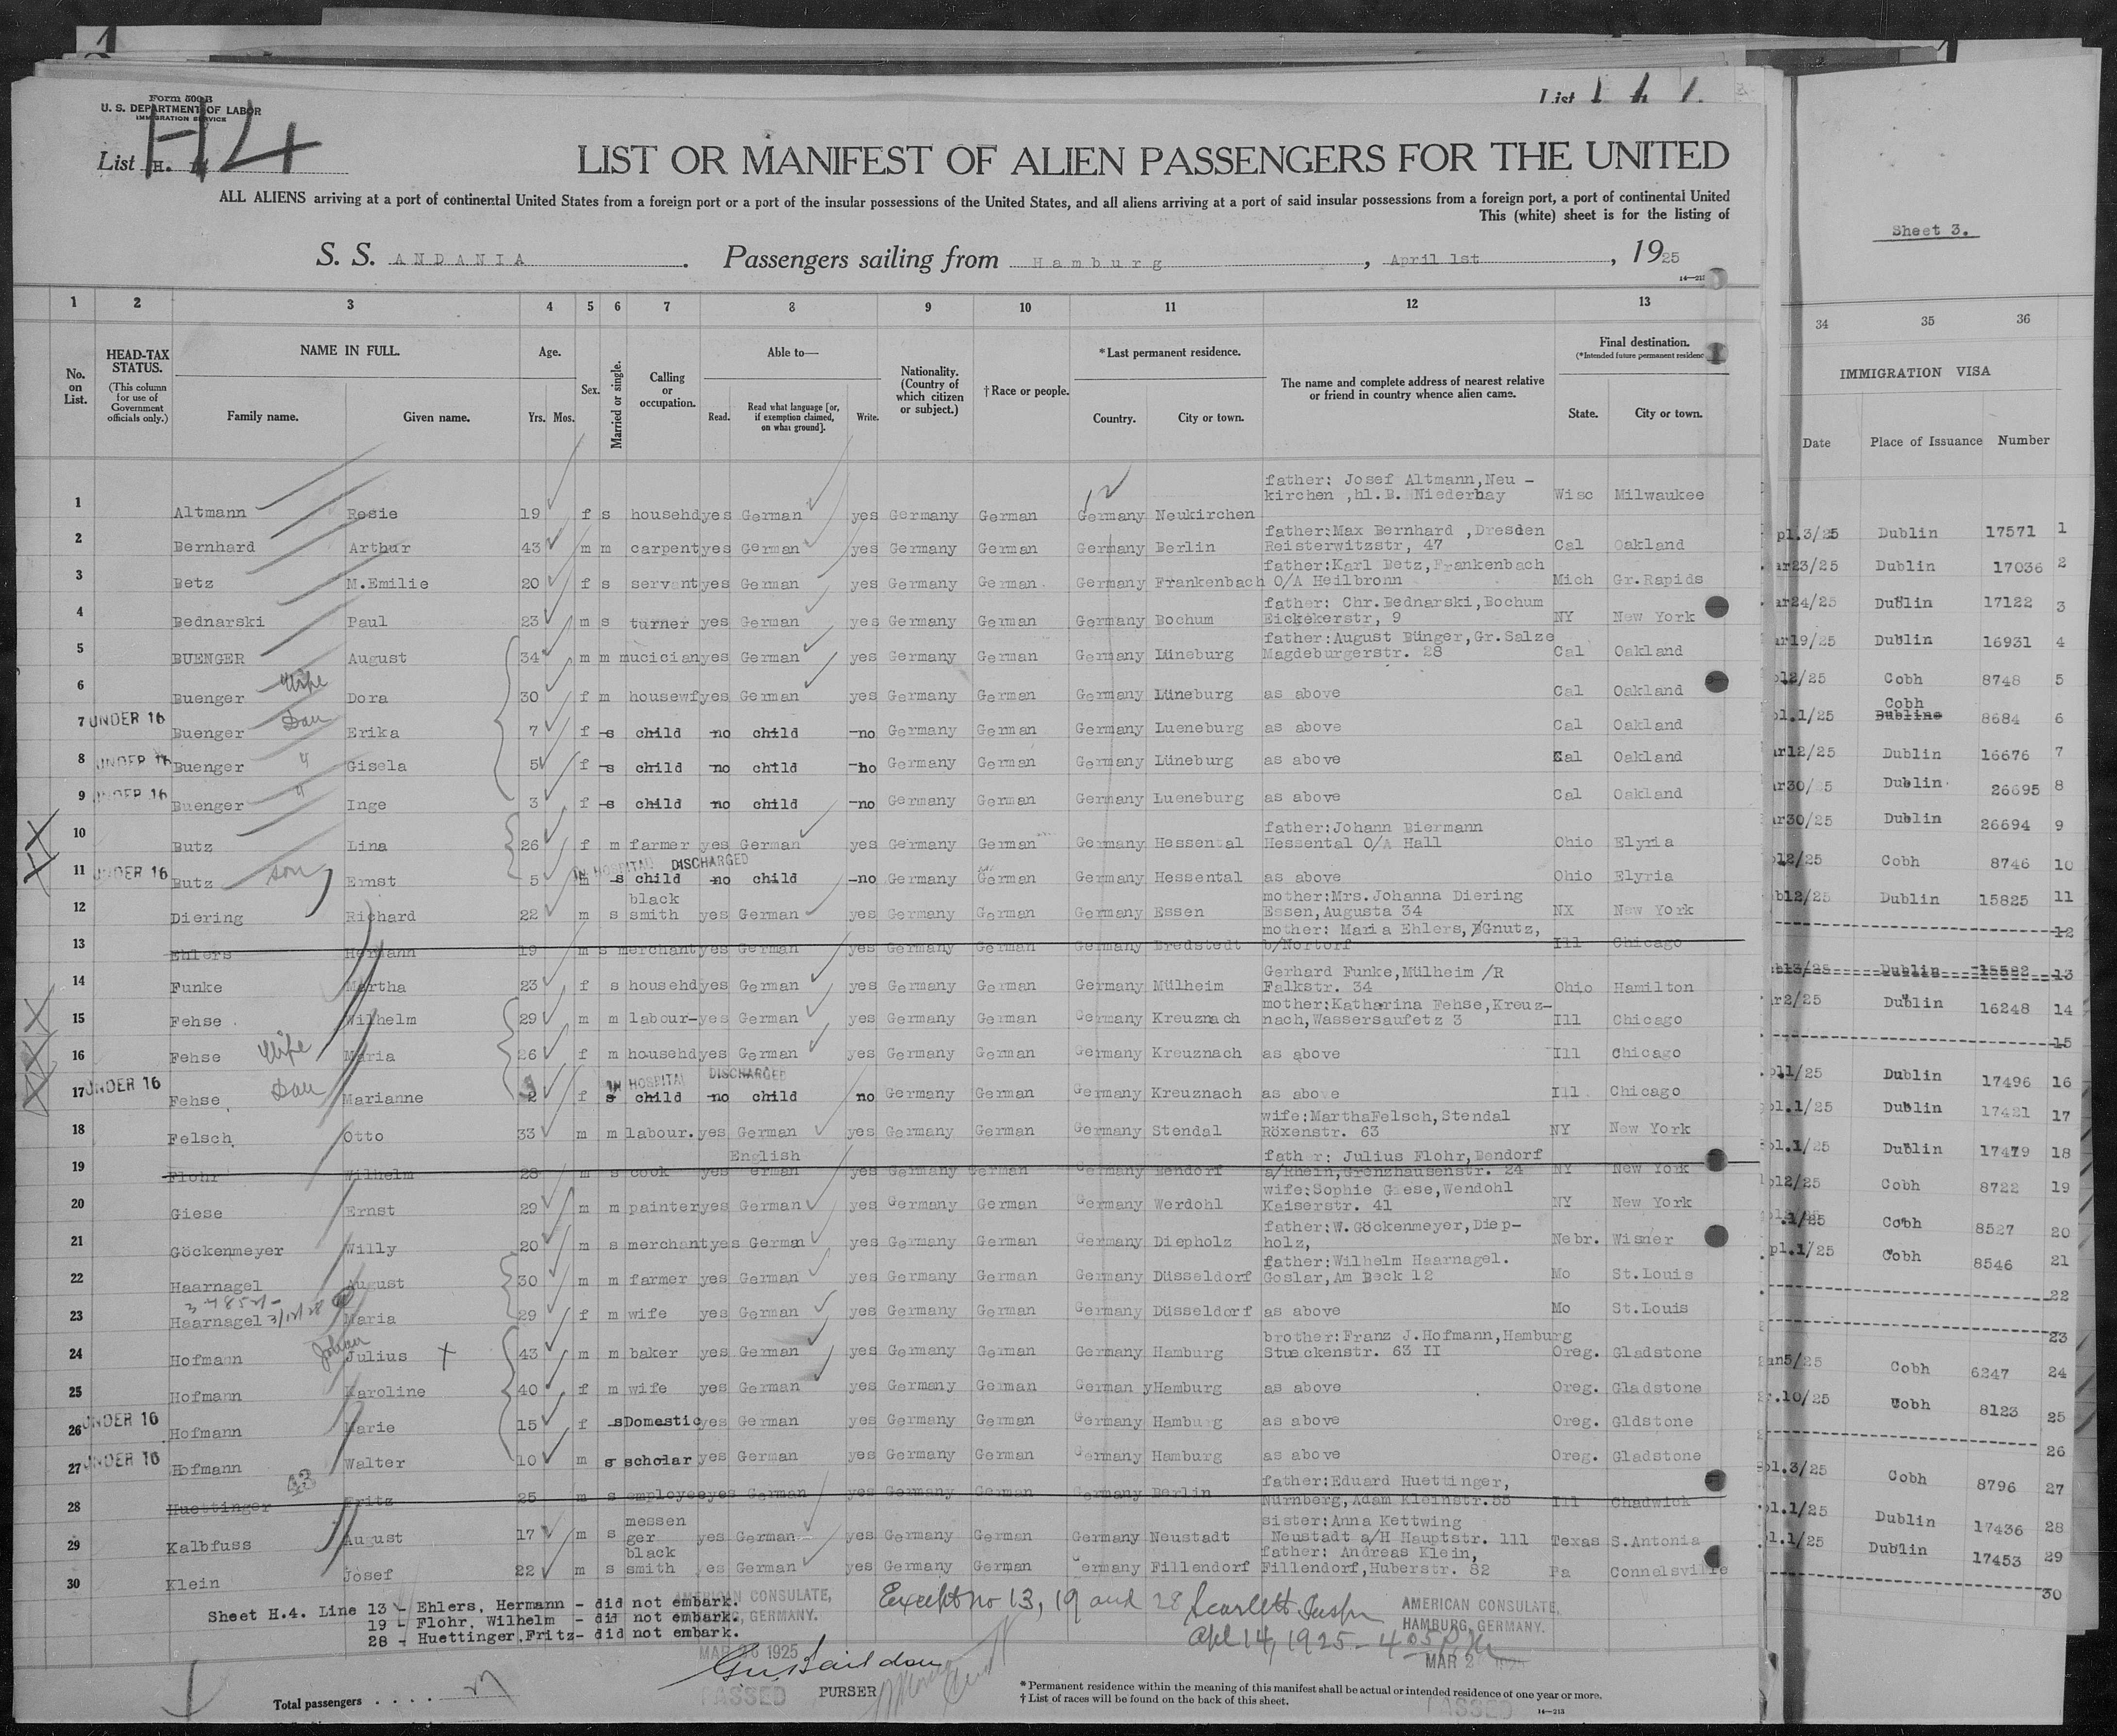 Form 500 B
U. S. DEPARTMENT OF LABOR
IMMIGRATION SERVICE
List H. 4
H4
List
LIST OR MANIFEST OF ALIEN PASSENGERS FOR THE UNITED
ALL ALIENS arriving at a port of continental United States from a foreign port or a port of the insular possessions of the United States, and all aliens arriving at a port of said insular possessions from a foreign port, a port of continental United
This (white) sheet is for the listing of
S. S. ANDANIA. Passengers sailing from Hamburg, April 1st, 1925
14—213
1 2 3 4 5 6 7 8 9 10 11 12 13
No. on List.
HEAD-TAX STATUS. (This column for use of Government officials only.)
NAME IN FULL.
Family name. Given name.
Age. Yrs. Mos.
Sex.
Married or single.
Calling or occupation.
Able to—
Read. Read what language [or, if exemption claimed, on what ground]. Write.
Nationality. (Country of which citizen or subject.)
†Race or people.
*Last permanent residence.
Country. City or town.
The name and complete address of nearest relative or friend in country whence alien came.
Final destination.
(*Intended future permanent residence
State. City or town.
1 Altmann Rosie 19 f s househd yes German yes Germany German Germany Neukirchen father: Josef Altmann, Neu-kirchen, hl. B. Niederbay Wisc Milwaukee
2 Bernhard Arthur 43 m m carpent yes German yes Germany German Germany Berlin father: Max Bernhard, Dresden Reisterwitzstr, 47 Cal Oakland
3 Betz M. Emilie 20 f s servant yes German yes Germany German Germany Frankenbach father: Karl Betz, Frankenbach O/A Heilbronn Mich Gr. Rapids
4 Bednarski Paul 23 m s turner yes German yes Germany German Germany Bochum father: Chr. Bednarski, Bochum Eickekerstr, 9 NY New York
5 BUENGER August 34 m m mucician yes German yes Germany German Germany Lüneburg father: August Bünger, Gr. Salze Magdeburgerstr. 28 Cal Oakland
6 Buenger Wife Dora 30 f m housewf yes German yes Germany German Germany Lüneburg as above Cal Oakland
7 UNDER 16 Buenger Dau Erika 7 f s child no child no Germany German Germany Lueneburg as above Cal Oakland
8 UNDER 16 Buenger " Gisela 5 f s child no child no Germany German Germany Lüneburg as above Cal Oakland
9 UNDER 16 Buenger " Inge 3 f s child no child no Germany German Germany Lueneburg as above Cal Oakland
10 Butz Lina 26 f m farmer yes German yes Germany German Germany Hessental father: Johann Biermann Hessental O/A Hall Ohio Elyria
IN HOSPITAL DISCHARGED
11 UNDER 16 Butz son Ernst 5 m s child no child no Germany German Germany Hessental as above Ohio Elyria
12 Diering Richard 22 m s black smith yes German yes Germany German Germany Essen mother: Mrs. Johanna Diering Essen, Augusta 34 NX New York
13 Ehlers Hermann 19 m s merchant yes German yes Germany German Germany Bredstedt mother: Maria Ehlers, Gnutz, b/Nortorf Ill Chicago
14 Funke Martha 23 f s househd yes German yes Germany German Germany Mülheim Gerhard Funke, Mülheim /R Falkstr. 34 Ohio Hamilton
15 Fehse Wilhelm 29 m m labour- yes German yes Germany German Germany Kreuznach mother: Katharina Fehse, Kreuz-nach, Wassersaufetz 3 Ill Chicago
16 Fehse Wife Maria 26 f m househd yes German yes Germany German Germany Kreuznach as above Ill Chicago
IN HOSPITAL DISCHARGED
17 UNDER 16 Fehse Dau Marianne 2 f s child no child no Germany German Germany Kreuznach as above Ill Chicago
18 Felsch Otto 33 m m labour. yes German yes Germany German Germany Stendal wife: MarthaFelsch, Stendal Röxenstr. 63 NY New York
19 Flohr Wilhelm 28 m s cook yes English German yes Germany German Germany Bendorf father: Julius Flohr, Bendorf a/Rhein, Grenzhausenstr. 24 NY New York
20 Giese Ernst 29 m m painter yes German yes Germany German Germany Werdohl wife: Sophie Giese, Wendohl Kaiserstr. 41 NY New York
21 Göckenmeyer Willy 20 m s merchant yes German yes Germany German Germany Diepholz father: W. Göckenmeyer, Diep-holz, Nebr. Wisner
22 Haarnagel August 30 m m farmer yes German yes Germany German Germany Düsseldorf father: Wilhelm Haarnagel. Goslar, Am Beck 12 Mo St. Louis
23 Haarnagel Maria 29 f m wife yes German yes Germany German Germany Düsseldorf as above Mo St. Louis
24 Hofmann Julius 43 m m baker yes German yes Germany German Germany Hamburg brother: Franz J. Hofmann, Hamburg Stueckenstr. 63 II Oreg. Gladstone
25 Hofmann Karoline 40 f m wife yes German yes Germany German Germany Hamburg as above Oreg. Gladstone
26 UNDER 16 Hofmann Marie 15 f s Domestic yes German yes Germany German Germany Hamburg as above Oreg. Gldstone
27 UNDER 16 Hofmann Walter 10 m s scholar yes German yes Germany German Germany Hamburg as above Oreg. Gladstone
28 Huettinger Fritz 25 m s employee yes German yes Germany German Germany Berlin father: Eduard Huettinger, Nürnberg, Adam Kleinstr. 55 Ill Chadwick
29 Kalbfuss August 17 m s messen ger yes German yes Germany German Germany Neustadt sister: Anna Kettwing Neustadt a/H Hauptstr. 111 Texas S. Antonia
30 Klein Josef 22 m s black smith yes German yes Germany German Germany Fillendorf father: Andreas Klein, Fillendorf, Huberstr. 82 Pa Connelsville
Sheet H.4. Line 13 - Ehlers, Hermann - did not embark.
19 - Flohr, Wilhelm - did not embark.
28 - Huettinger, Fritz - did not embark.
AMERICAN CONSULATE, HAMBURG, GERMANY.
MAR 26 1925
PASSED
PURSER
Except no 13, 19 and 28
Apl 14, 1925 - 4 05 P.M.
AMERICAN CONSULATE, HAMBURG, GERMANY.
MAR 2
PASSED
Total passengers . . . .
* Permanent residence within the meaning of this manifest shall be actual or intended residence of one year or more.
† List of races will be found on the back of this sheet.
14—213
Sheet 3.
34 35 36
IMMIGRATION VISA
Date Place of Issuance Number
pl.3/25 Dublin 17571 1
ar23/25 Dublin 17036 2
ar24/25 Dublin 17122 3
ar19/25 Dublin 16931 4
12/25 Cobh 8748 5
l.1/25 Cobh Dubline 8684 6
ar12/25 Dublin 16676 7
r30/25 Dublin 26695 8
ar30/25 Dublin 26694 9
12/25 Cobh 8746 10
b12/25 Dublin 15825 11
12
b13/25 Dublin 15592 13
r2/25 Dublin 16248 14
15
l1/25 Dublin 17496 16
l.1/25 Dublin 17421 17
pl.1/25 Dublin 17479 18
l2/25 Cobh 8722 19
.1/25 Cobh 8527 20
pl.1/25 Cobh 8546 21
22
23
an5/25 Cobh 6247 24
r.10/25 Cobh 8123 25
26
pl.3/25 Cobh 8796 27
pl.1/25 Dublin 17436 28
pl.1/25 Dublin 17453 29
30